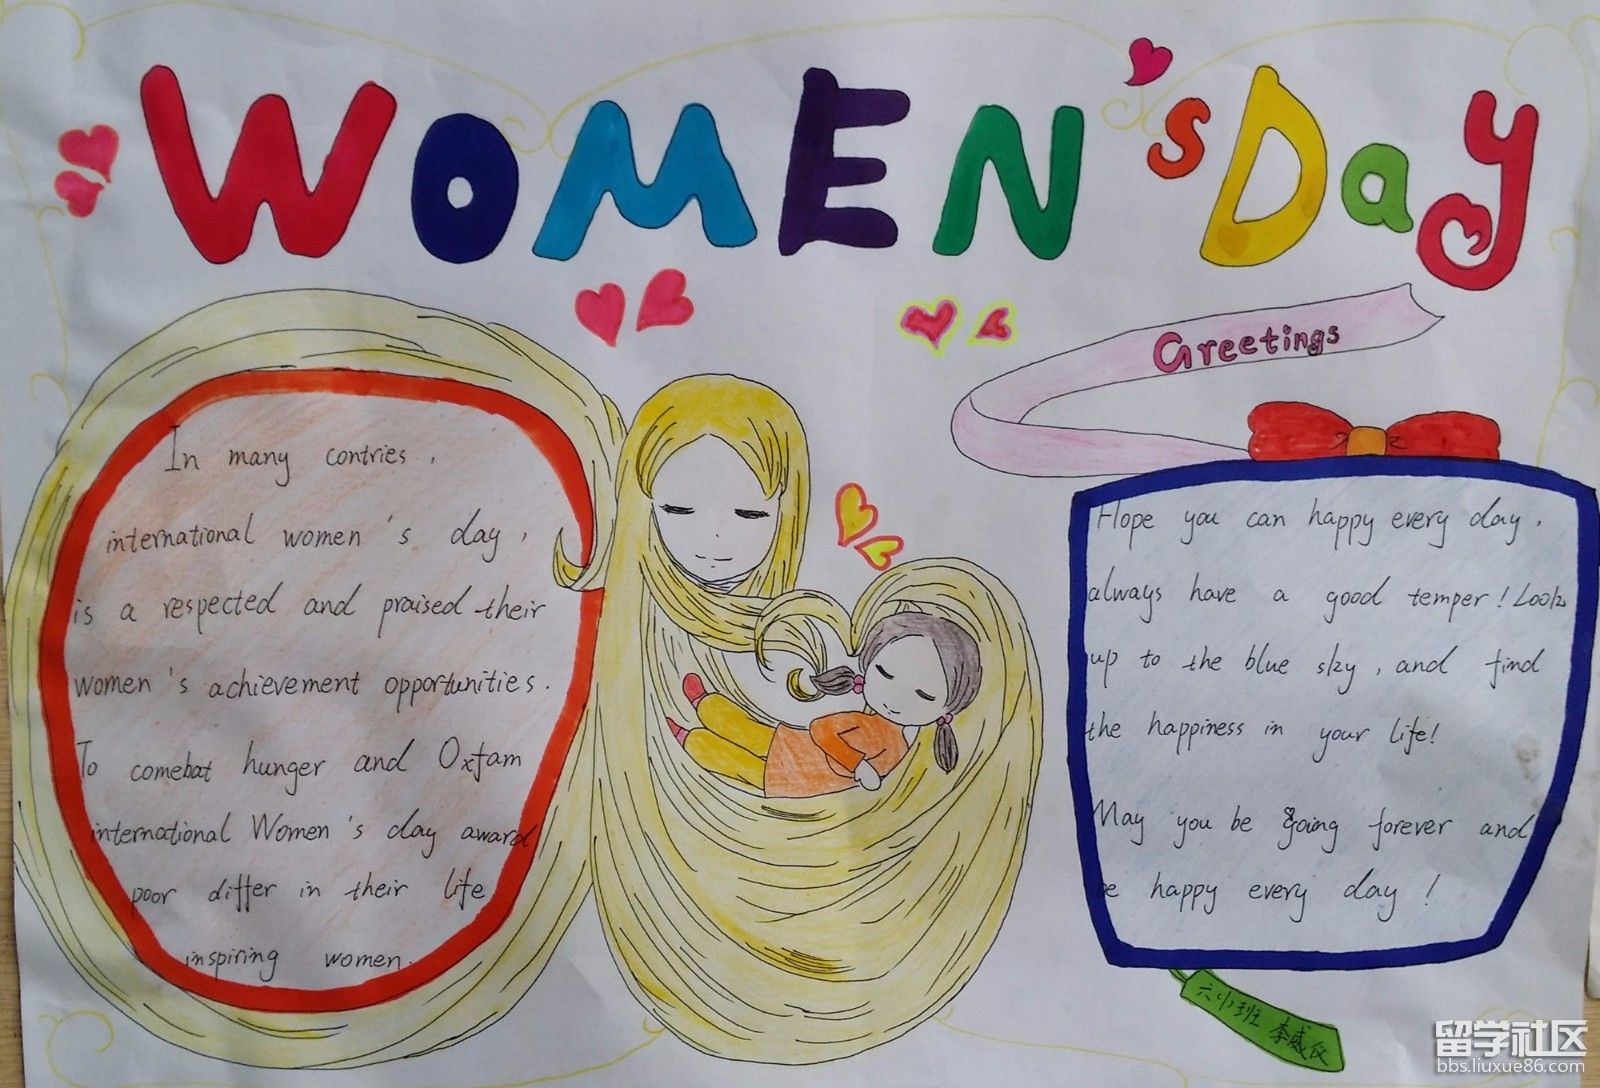 WOMEN'S Day
Greetings
In many contries,
international women's day,
is a respected and praised their
women's achievement opportunities.
To comebat hunger and Oxfam
international Women's day award
poor differ in their life
inspiring women.
Hope you can happy every day,
always have a good temper! Look
up to the blue sky, and find
the happiness in your life!
May you be going forever and
be happy every day!
六(1)班 李威仪
留学社区
bbs.liuxue86.com